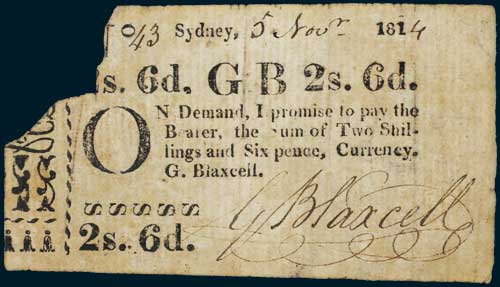 No 43 Sydney, 5 Novr. 1814
2s. 6d. G B 2s. 6d.
ON Demand, I promise to pay the
Bearer, the sum of Two Shil-
lings and Six pence, Currency.
G. Blaxcell.
SSSSS
2s. 6d.
G Blaxcell